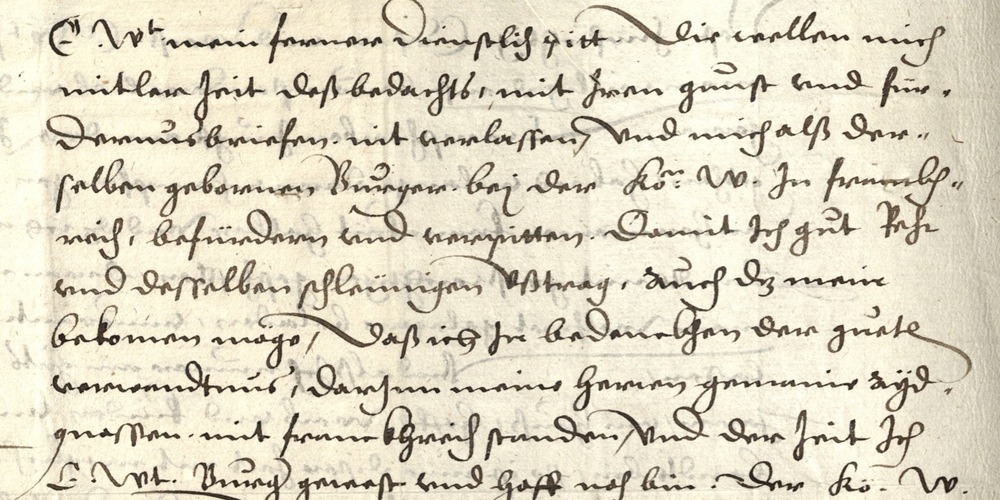 E. Wt. mein ferner dienstlich pitt, Die wellen mich
mitler Zeit deß bedachts, mit Iren gunst und für-
dernusbriefen nit verlassen, und mich alß der-
selben gebornen Burger bej der Kön. W. In franckh-
reich, befürdern und verpitten. Damit Ich gut Recht
und desselben schleunigen Ußtrag, auch dz mein
bekomen möge, Daß ich In bedenckhen der guete
verwandtnus, darInn meine herren gemaine Aÿd-
gnossen mit franckhreich standen, und der Zeit Ich
E. Wt. Burger gewest und hoff noch bin. Der Kö. W.